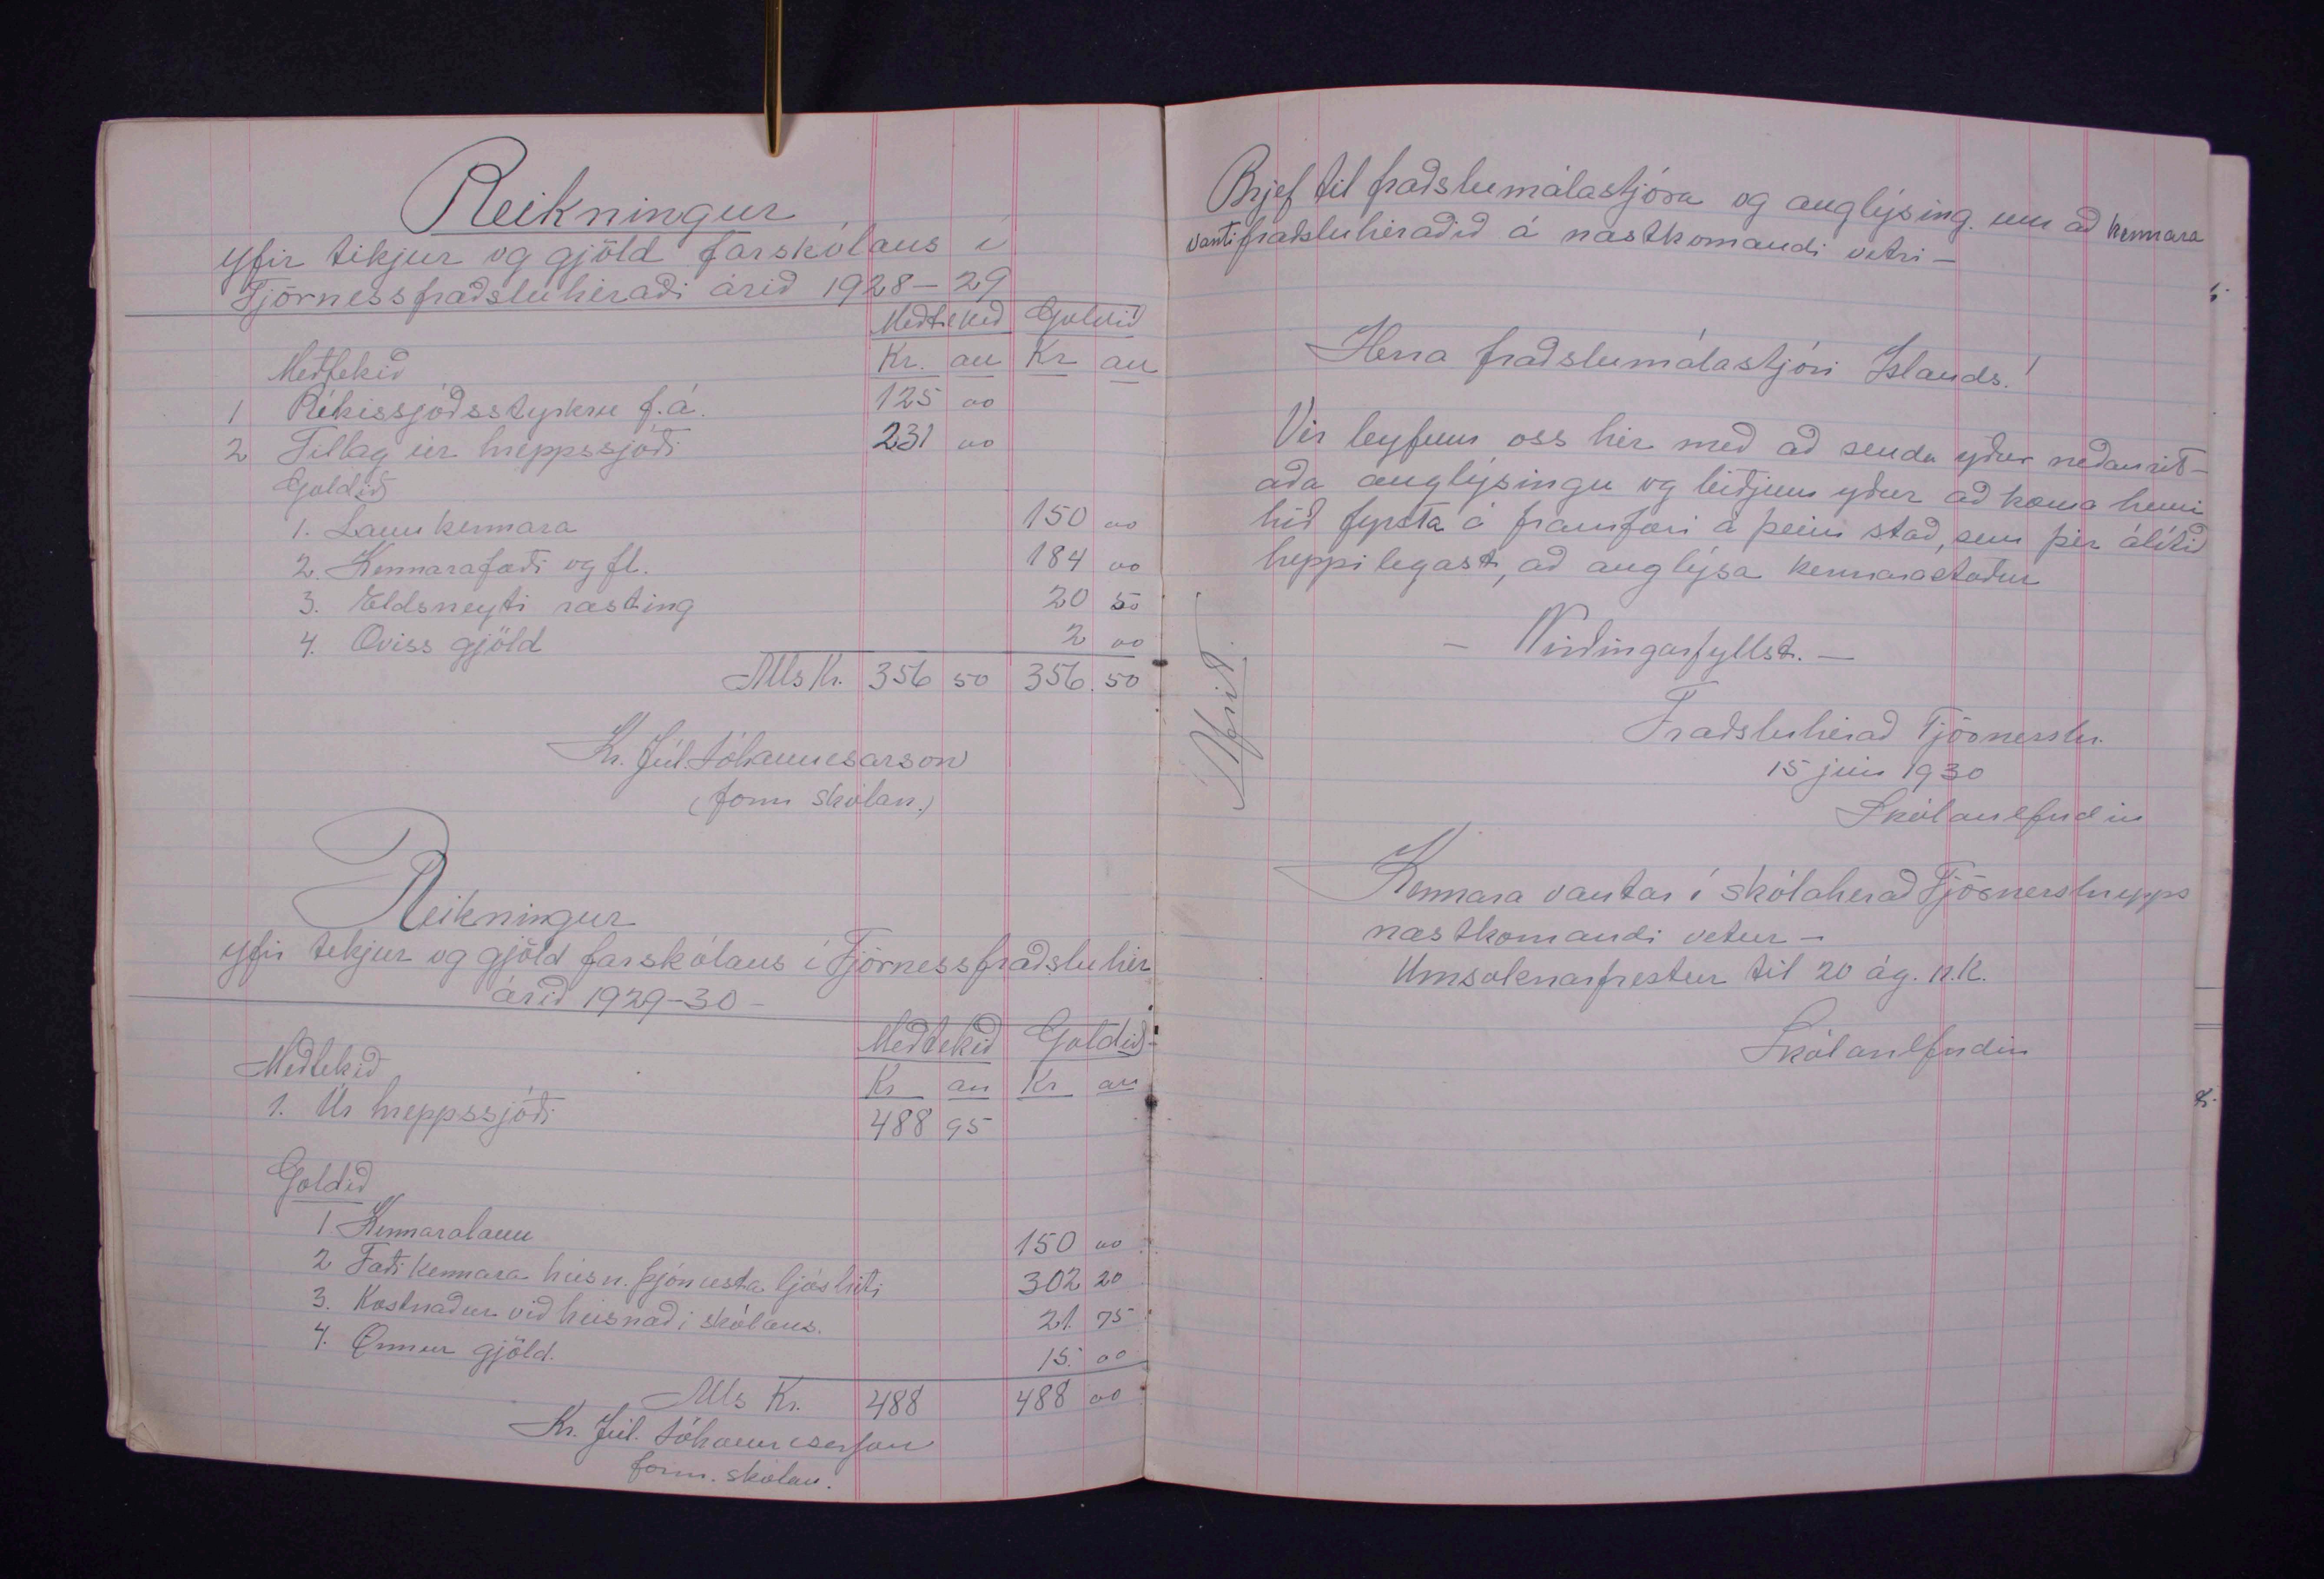 Reikningur
yfir tekjur og gjöld farskólans í
Tjörnessfræðsluhéraði árið 1928-29
Meðtekið Goldið
Meðtekið Kr. au Kr au
1 Ríkissjóðsstyrkur f.á. 125 00
2 Tillag úr hreppssjóði 231 00
Goldið
1. Laun kennara 150 00
2. Kennarafæði og fl. 184 00
3. Eldsneyti ræsting 20 50
4. Óviss gjöld 2 00
Alls Kr. 356 50 356.50
Kr. Júl. Jóhannesarson
(form skólan.)
Reikningur
yfir tekjur og gjöld farskólans í Tjörnessfræðsluhér
árið 1929-30-
Meðtekið Goldið
Meðtekið Kr au Kr au
1. Úr hreppssjóði 488 95
Goldið
1 Kennaralaun 150 00
2 Fæði kennara húsn. þjónusta ljós hiti 302 20
3. Kostnaður við húsnæði skólans. 21. 75
4. Önnur gjöld. 15. 00
Alls Kr. 488 488 00
Kr. Júl. Jóhannesarson
form. skólan.
Brjef til fræðslumálastjóra og auglýsing um að kennara
vanti fræðsluhéraðið á næstkomandi vetri -
Herra fræðslumálastjóri Íslands!
Vér leyfum oss hér með að senda yður neðanrit-
aða auglýsingu og biðjum yður að koma henni
hið fyrsta á framfæri á þeim stað, sem þér álítið
heppilegast, að auglýsa kennarastöður
- Virðingarfyllst. -
Fræðsluhérað Tjörnesshr.
15 júní 1930
Skólanefndin
Afrit.
Kennara vantar í skólahérað Tjörneshrepps
næstkomandi vetur -
Umsóknarfrestur til 20 ág. n.k.
Skólanefndin